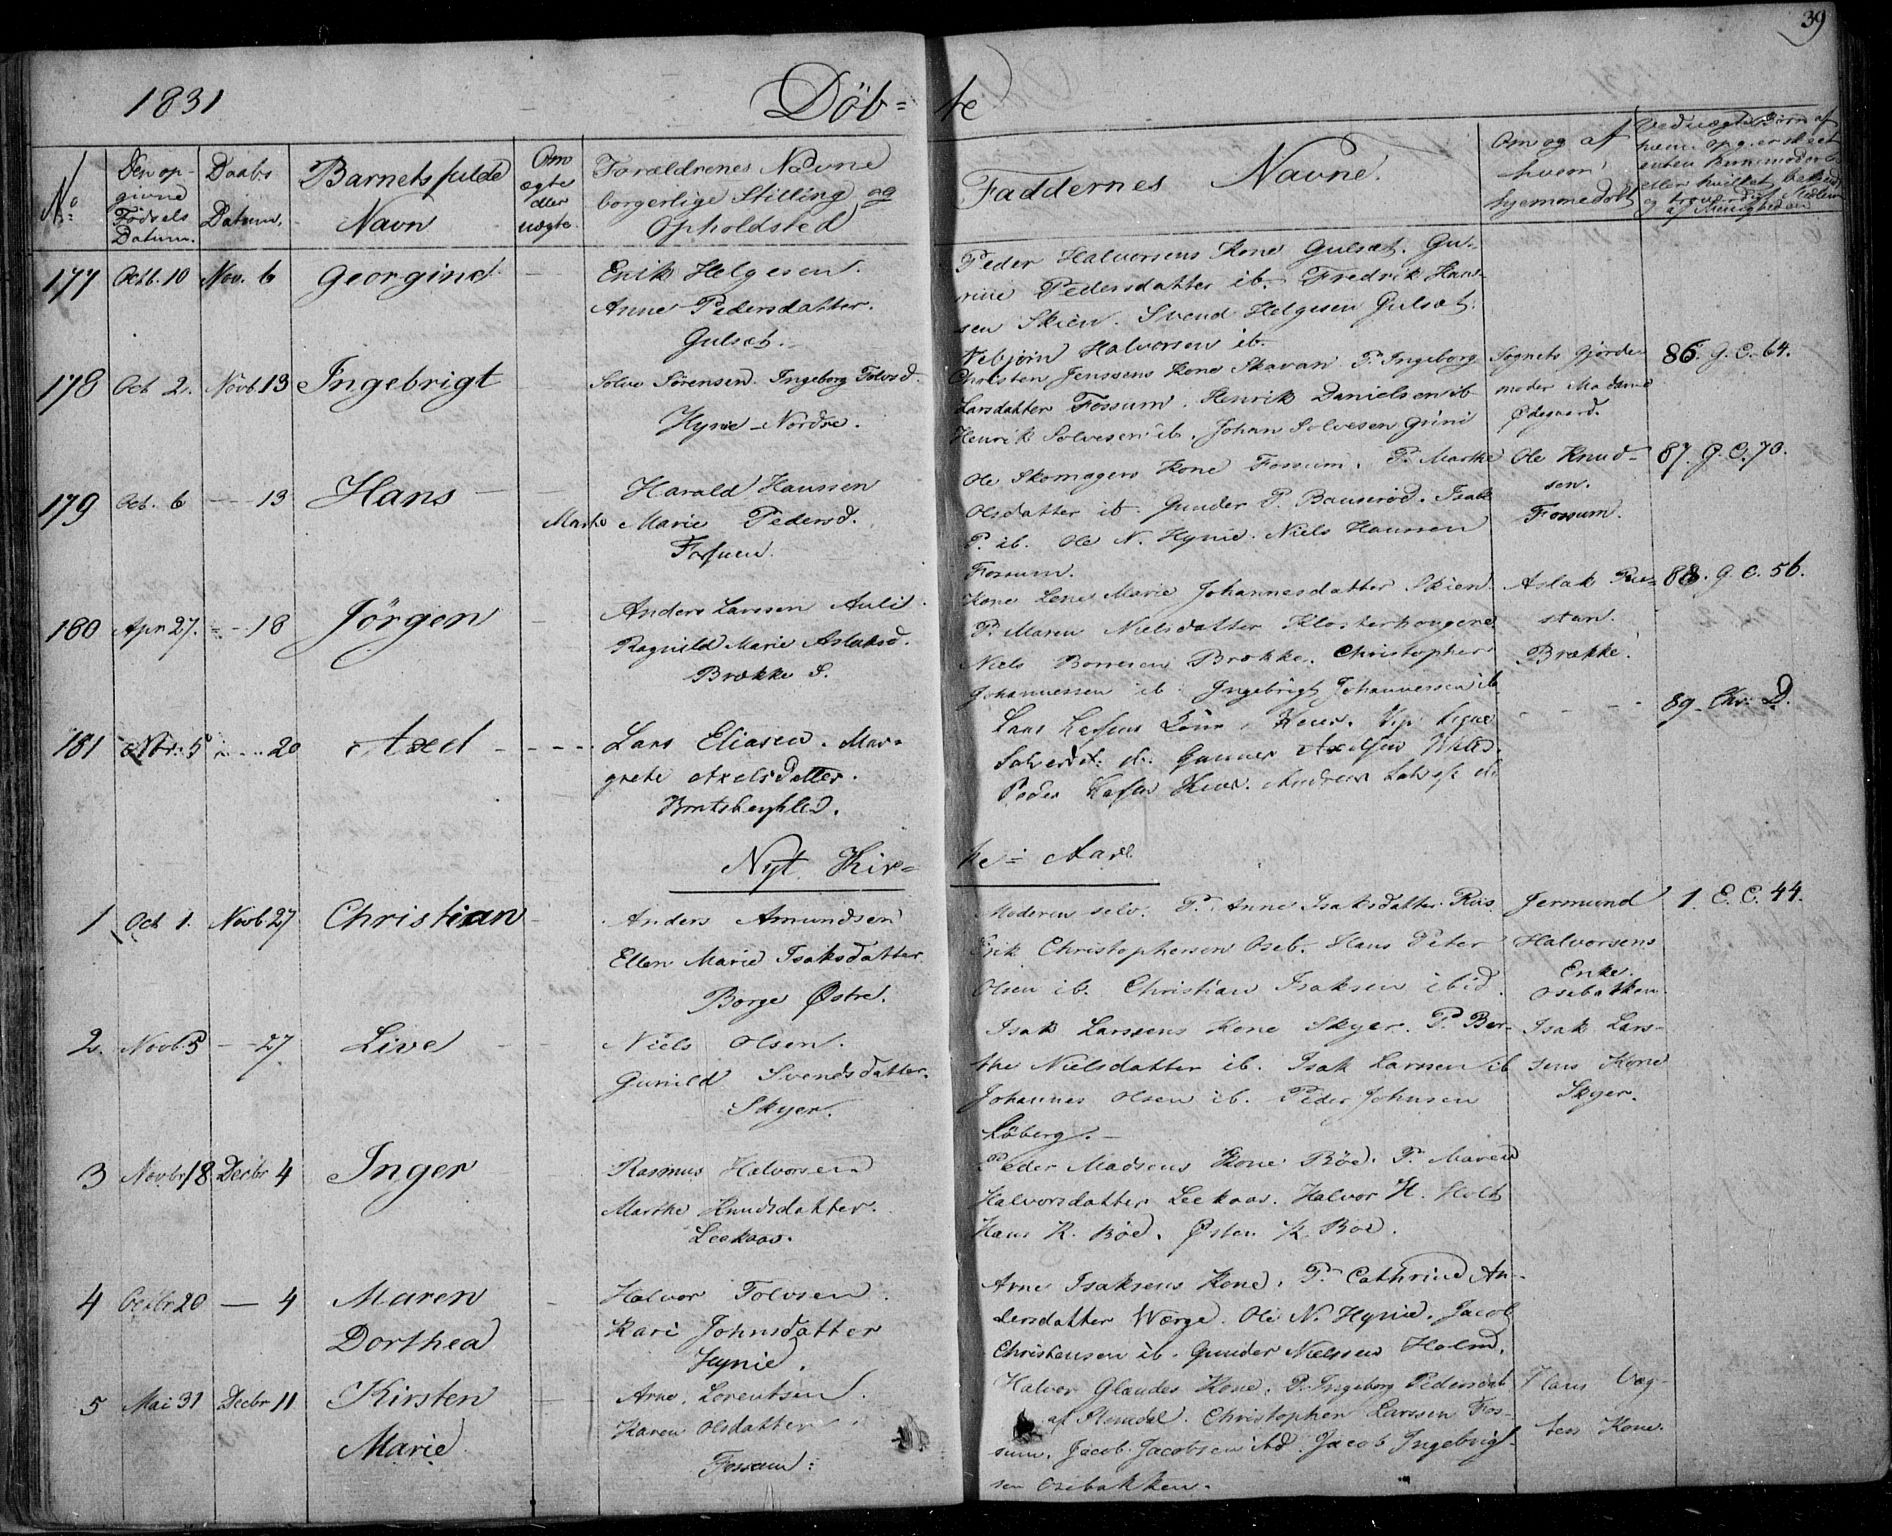 39
1831 Döb= te
No
Den op-
givne
Födsels
Datum.
Daabs
Datum.
Barnets fulde
Navn
Om
ægte
eller
uægte.
Forældrenes Navne
borgerlige Stilling og
Opholdsted
Faddernes Navne.
Om og af
hvem
hjemmedöbt
177 Octb. 10 Nov. 6 Georgine
Erik Helgesen.
Anne Pedersdatter.
Gulset.
Peder Halvorsens Kone Gulset. Gu-
rine Pedersdatter ib. Fredrik Han-
sen Skien. Svend Helgesen Gulset.
Nebjörn Halvorsen ib.
178 Oct 2. Novb 13 Ingebrigt
Solve Sörensen. Ingeborg Tolvsd.
Hynie Nordre.
Christen Jenssens Kone Skavan P. Ingeborg
Larsdatter Fossum. Henrik Danielsen ib
Henrik Solvesen ib. Johan Solvesen Grini
Sognets Gjorde-
moder Madame
Ödegaard.
86. G. C. 64.
179 Oct. 6 — 13 Hans
Harald Hanssen
Marthe Marie Pedersd.
Fossum.
Ole Skomagers Kone Fossum. P. Marthe
Olsdatter ib. Gunder P. Bauseröd. Isak
P. ib. Ole N. Hynie. Niels Hanssen
Fossum.
Ole Knud-
sen.
Fossum.
87. G. C. 70.
180 Apr 27. - - 18 Jörgen
Anders Larssen Auli.
Ragnild Marie Aslaksd.
Brække S.
Kone Lene Marie Johannesdatter Skien.
P. Maren Nielsdatter Klosterhougene
Niels Borresen Brække. Christopher
Johannessen ib. Ingebrigt Johannessen ib.
Aslak
stan.
Brække.
88. G. C. 56.
181 Nbr. 5 - - 20 Axel
Lars Eliasen. Mar-
grete Axelsdatter.
Bratsbergkleo.
Gunner Axelsen
Peder
89. Chr. D.
Nyt Kir= ke= Aar.
1 Oct 1. Novb 27 Christian
Anders Amundsen
Ellen Marie Isaksdatter
Borge Østre.
Moderen selv. P. Anne Isaksdatter Riis.
Erik Christophersen Oseb. Hans Peter
Olsen ib. Christian Isaksen ibid.
Jermund
Halvorsens
Enke.
Osebakken.
1. E. C. 44.
2. Novb. 5 — 27 Live
Niels Olsen.
Gunild Svendsdatter.
Skyer.
Isak Larssens Kone Skyer. P. Ber-
the Nielsdatter ib. Isak Larssen ib
Johannes Olsen ib. Peder Johnsen
Löberg.
Isak Lars-
sens Kone
Skyer.
3 Novbr 18 Decbr 4 Inger
Rasmus Halvorsen
Marthe Knudsdatter.
Leekaas.
Peder Madsens Kone Böe. P. Maren
Halvorsdatter Leekaas. Halvor H. Holt
Hans K. Böe. Østen K. Böe.
4 Octbr 20 — 4 Maren
Dorthea
Halvor Tolvsen.
Kari Johnsdatter
Hynie.
Arne Isaksens Kone. P. Cathrine An-
dersdatter Værge. Ole N. Hynie. Jacob
Christensen ib. Gunder Nielssen Holm.
5 Mai 31 Decbr 11 Kirsten
Marie
Arne Lorentsen.
Karen Olsdatter
Fossum.
Halvor Glaudes Kone. P. Ingeborg Pedersdat
af Slemdal. Christopher Larssen Fos-
sum. Jacob Jacobsen ibd. Jacob Ingebrigt-
sen Osebakken.
Hans Væg-
ters Kone.